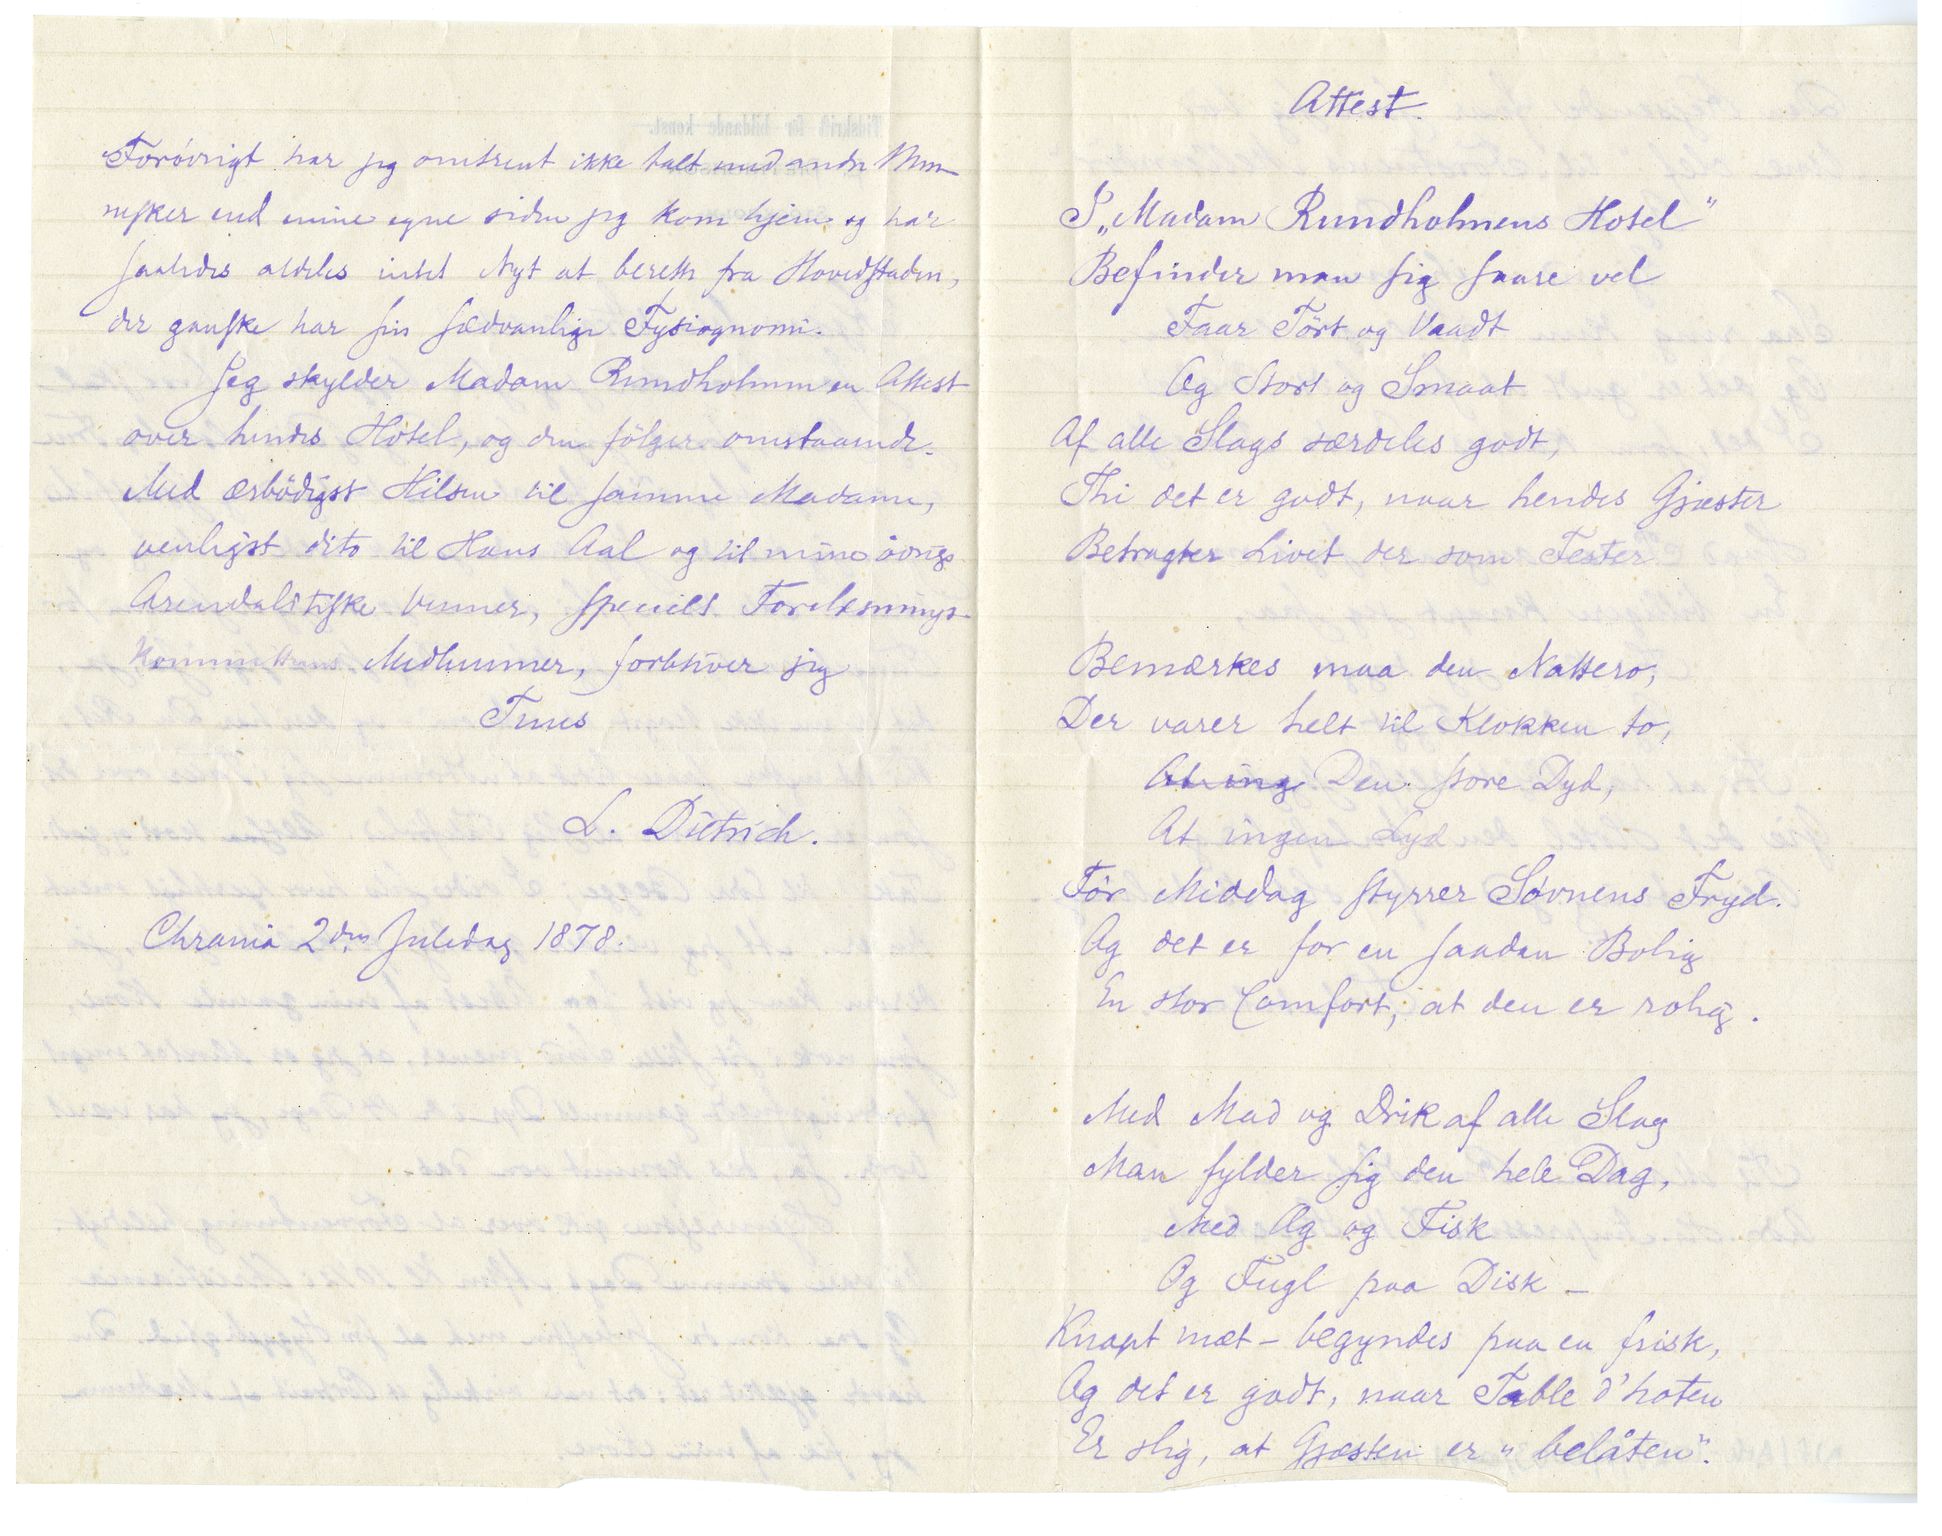 Forøvrigt har jeg omtrent ikke talt med andre Men-
nesker end mine egne siden jeg kom hjem og har
saaledes aldeles intet Nyt at berette fra Hovedstaden,
der ganske har sin sædvanlige Fysiognomi.
Jeg skylder Madam Rundholmen en Attest
over hendes Hotel, og den følger omstaaende.
Med ærbödigst Hilsen til samme Madame,
venligst dito til Hans Aal og til mine övrige
Arendalitiske Venner, specielt Forelæsnings-
kommitteens Medlemmer, forbliver jeg
Tuus
L. Dietrich.
Chrania 2den Juledag 1878.
Attest.
I „Madam Rundholmens Hotel"
Befinder man sig saare vel
Faar Tört og Vaadt
Og Stort og Smaat
Af alle Slags særdeles godt,
Thi det er godt, naar hendes Gjæster
Betragter Livet der som Fester
Bemærkes maa den Nattero,
Der varer helt til Klokken to,
At ing Den store Dyd,
At ingen Lyd
För Middag styrrer Sövnens Fryd.
Og det er for en saadan Bolig
En stor Comfort, at den er rolig.
Med Mad og Drik af alle Slag
Man fylder sig den hele Dag,
Med Æg og Fisk
Og Fugl paa Disk –
Knapt mæt – begyndes paa en frisk,
Og det er godt, naar Table d'hoten
Er slig, at Gjæsten er „belåten".